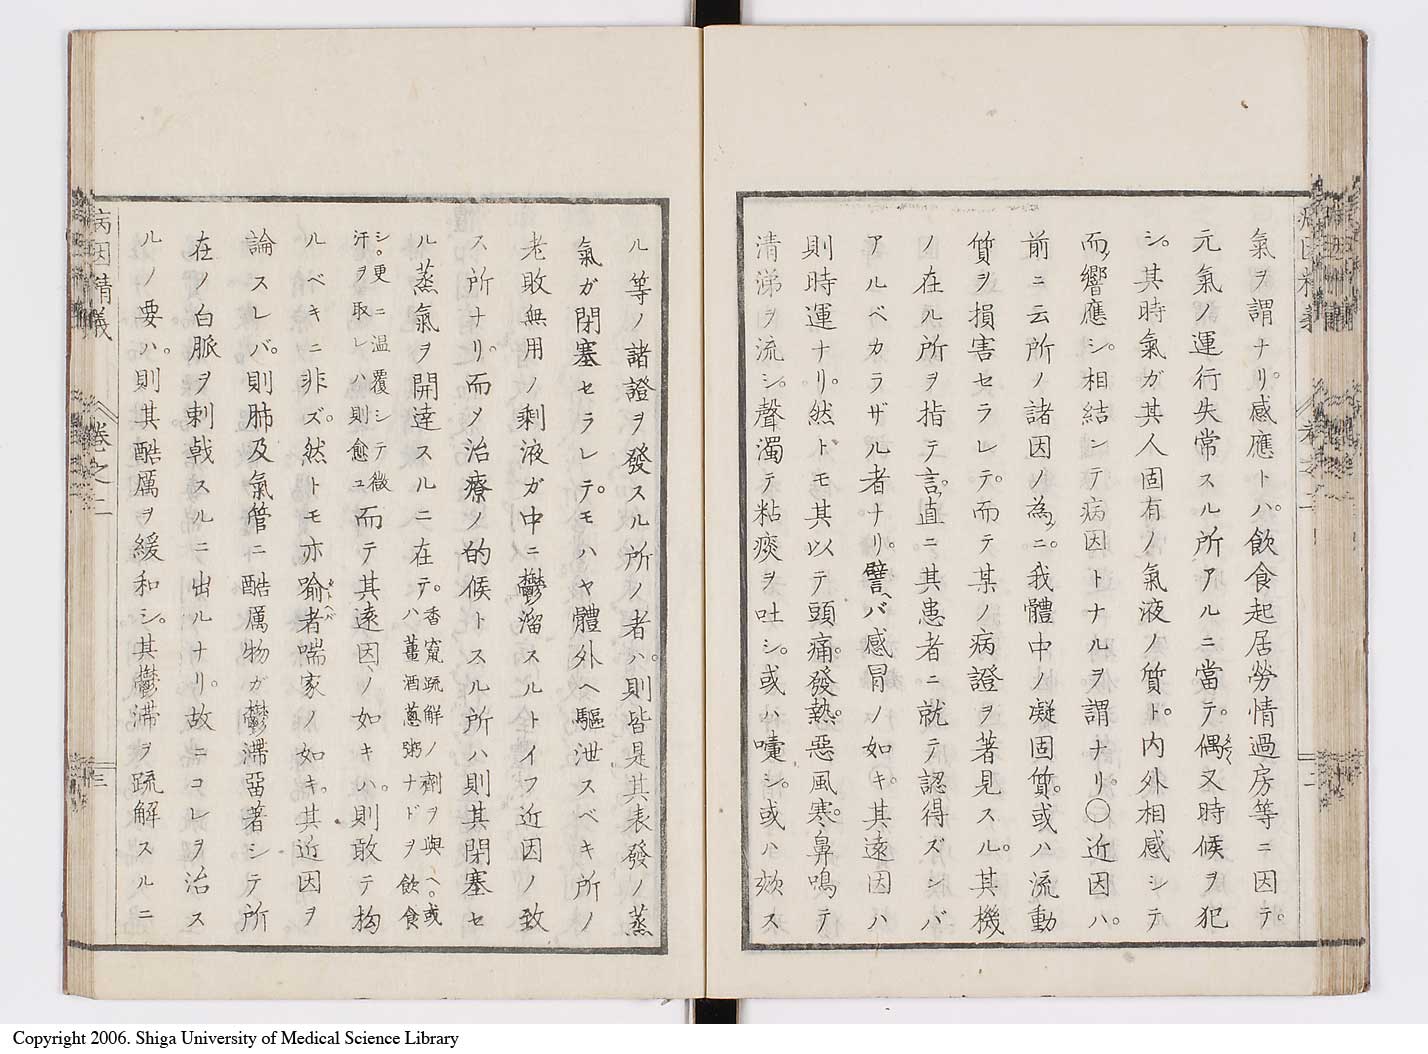 氣ヲ謂ナリ。感應トハ。飲食起居勞情過房等ニ因テ。
元氣ノ運行失常スル所アルニ當テ。偶又時候ヲ犯
シ。其時氣ガ其人固有ノ氣液ノ質ト。内外相感シテ
而響應シ。相結シテ病因トナルヲ謂ナリ。〇近因ハ。
前ニ云所ノ諸因ノ為ニ。我體中ノ凝固質。或ハ流動
質ヲ損害セラレテ。而テ某ノ病證ヲ著見スル。其機
ノ在ル所ヲ指テ言。直ニ其患者ニ就テ認得ズシバ
アルベカラザル者ナリ。譬ヘバ感冒ノ如キ。其遠因ハ
則時運ナリ。然トモ其以テ頭痛。發熱。惡風寒。鼻鳴テ
清涕ヲ流シ。聲濁テ粘痰ヲ吐シ。或ハ嚏シ。或ハ欬ス
ル等ノ諸證ヲ發スル所ノ者ハ。則皆是其表發ノ蒸
氣ガ閉塞セラレテ。モハヤ體外ヘ驅泄スベキ所ノ
老敗無用ノ剩液ガ中ニ鬱溜スルトイフ近因ノ致
ス所ナリ。而〆治療ノ的候トスル所ハ則其閉塞セ
ル蒸氣ヲ開達スルニ在テ。香竄疏解ノ劑ヲ與ヘ。或
ハ薑酒葱粥ナドヲ飲食
シ。更ニ温覆シテ微
汗ヲ取レハ則愈ユ而テ其遠因ノ如キハ。則敢テ拘
ルベキニ非ズ。然トモ亦喩者喘家ノ如キ。其近因ヲ
論スレバ。則肺及氣管ニ酷厲物ガ鬱滯畱著シテ所
在ノ白脈ヲ刺戟スルニ出ルナリ。故ニコレヲ治ス
ルノ要ハ。則其酷厲ヲ緩和シ。其鬱滯ヲ疏解スルニ
病因精義
卷之二
三
Copyright 2006. Shiga University of Medical Science Library